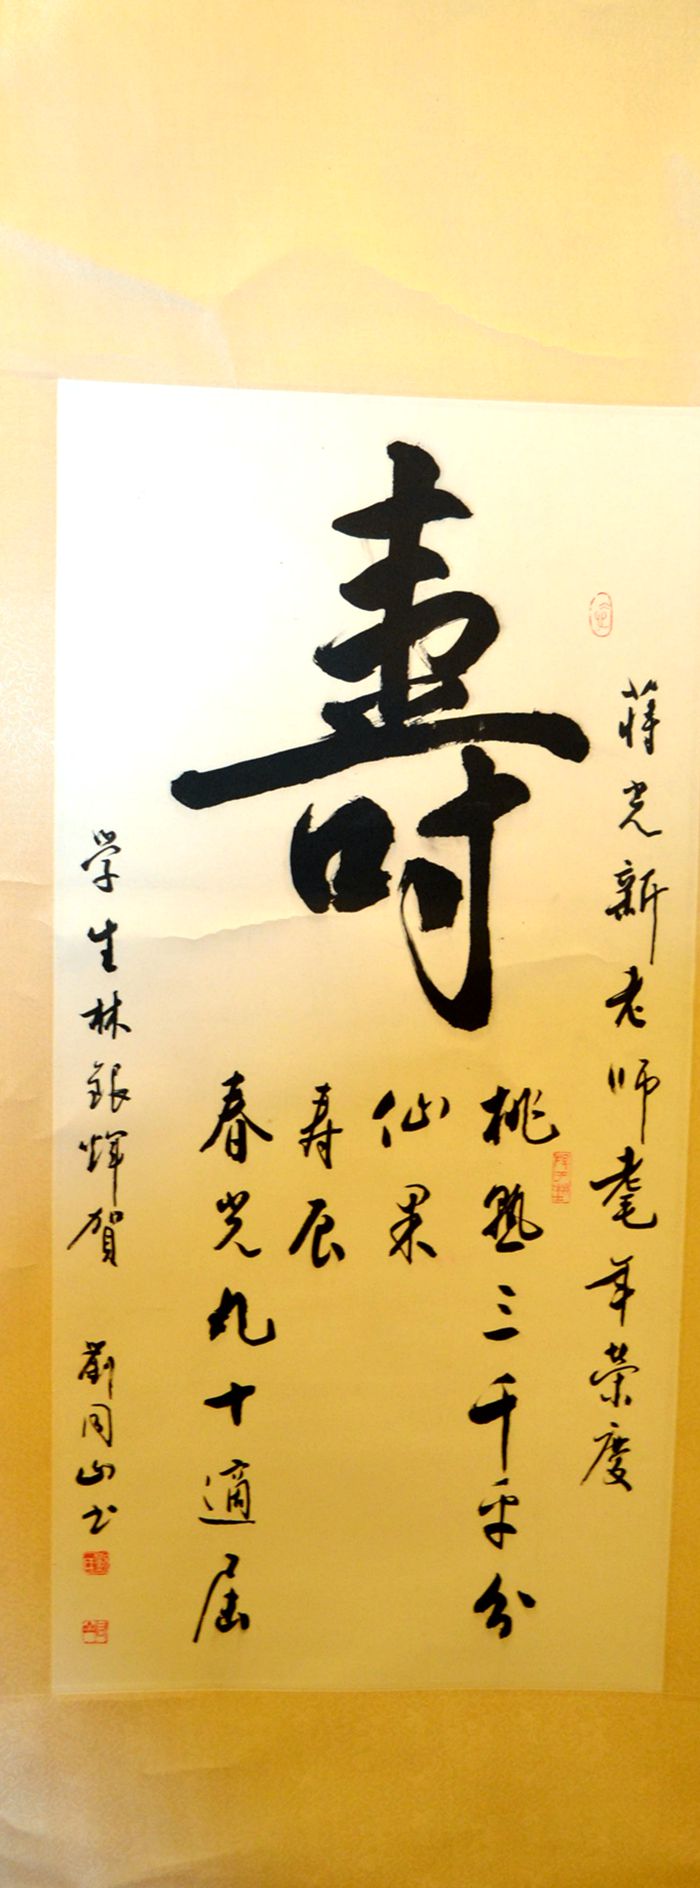 寿
蒋光新老师耄年荣庆
桃熟三千平分
仙果
寿辰
春光九十适届
学生林银辉贺
同山书